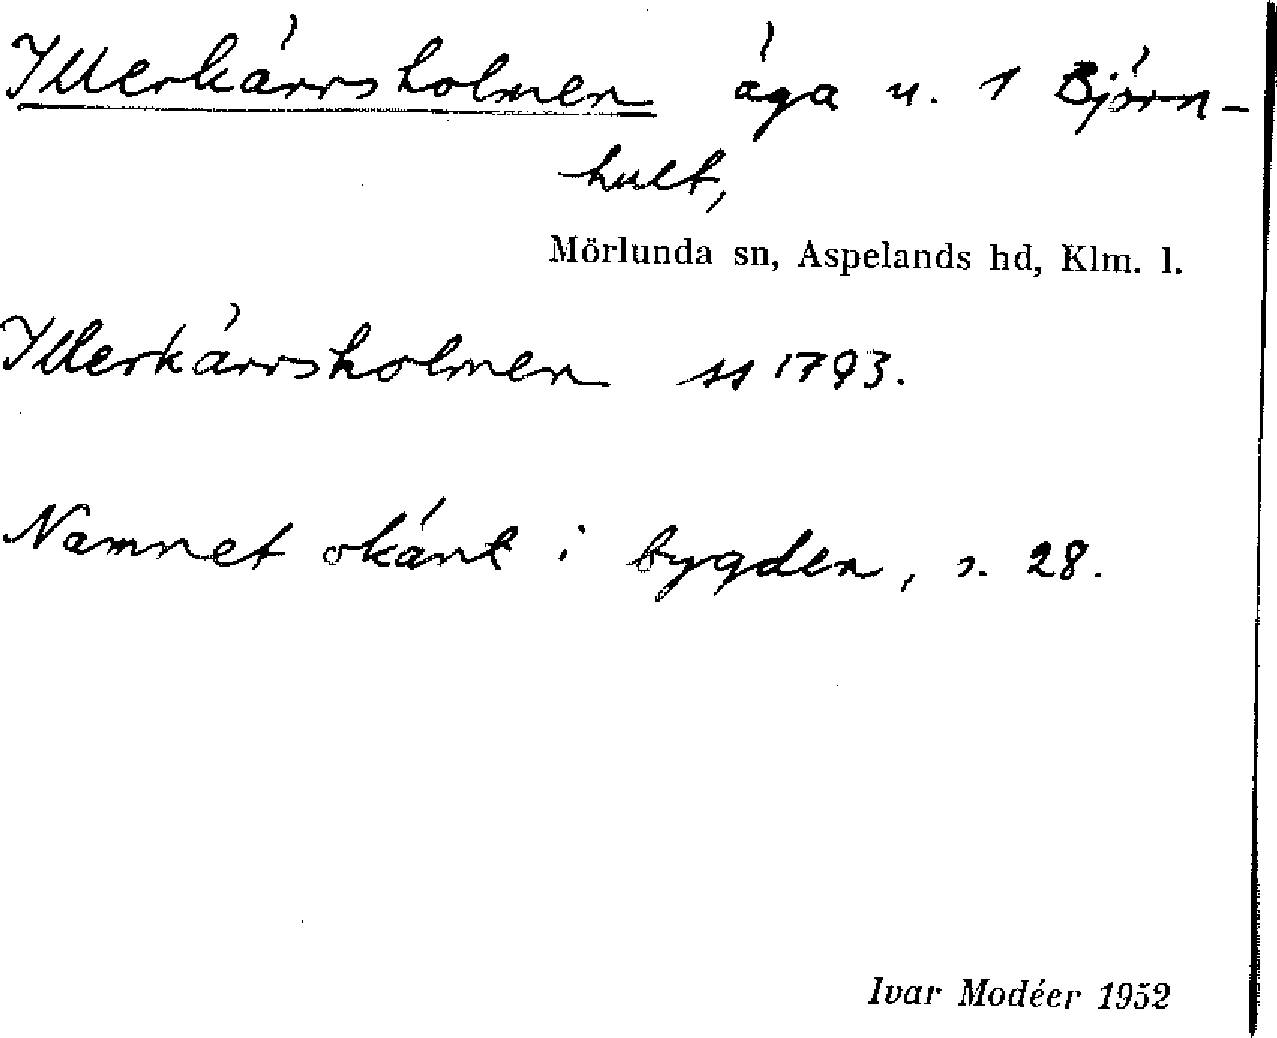 Illerkärrsholmen äga u. 1 Björn-
hult,
Mörlunda sn, Aspelands hd, Klm. l.
Illerkärrsholmen ss 1793.
Namnet okänt i bygden, s. 28.
Ivar Modéer 1952